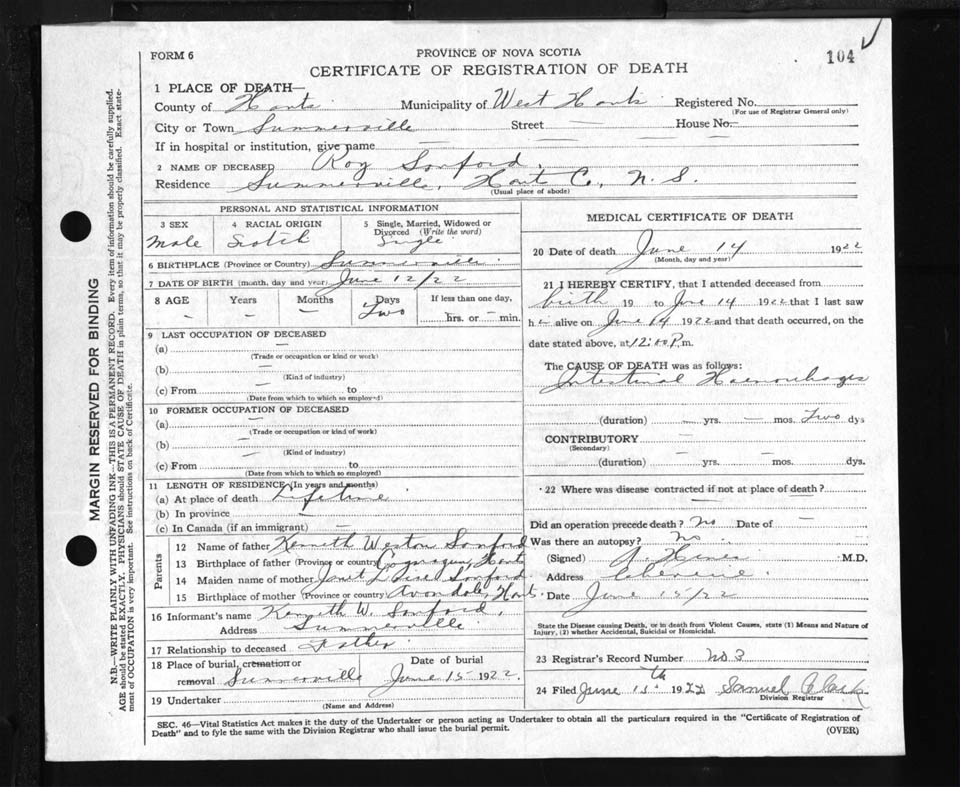 FORM 6
PROVINCE OF NOVA SCOTIA
104
CERTIFICATE OF REGISTRATION OF DEATH
1 PLACE OF DEATH—
County of Hants Municipality of West Hants Registered No.
(For use of Registrar General only)
City or Town Summerville Street — House No. —
If in hospital or institution, give name —
2 NAME OF DECEASED Roy Sanford.
Residence Summerville, Hants Co., N. S.
(Usual place of abode)
PERSONAL AND STATISTICAL INFORMATION
3 SEX 4 RACIAL ORIGIN 5 Single, Married, Widowed or
Divorced (Write the word)
Male Scotch Single
6 BIRTHPLACE (Province or Country) Summerville
7 DATE OF BIRTH (month, day and year) June 12/22
8 AGE Years Months Days If less than one day,
- - - Two - hrs. or - min.
9 LAST OCCUPATION OF DECEASED
(a) —
(Trade or occupation or kind or work)
(b) —
(Kind of industry)
(c) From — to
(Date from which to which so employed)
10 FORMER OCCUPATION OF DECEASED
(a) —
(Trade or occupation or kind of work)
(b) —
(Kind of industry)
(c) From — to
(Date from which to which so employed)
11 LENGTH OF RESIDENCE (In years and months)
(a) At place of death Lifetime
(b) In province —
(c) In Canada (if an immigrant) —
Parents
12 Name of father Kenneth Weston Sanford
13 Birthplace of father (Province or country) Hants
14 Maiden name of mother Janet Sanford.
15 Birthplace of mother (Province or country) Avondale, Hants.
16 Informant's name Kenneth W. Sanford,
Address Summerville
17 Relationship to deceased Father
18 Place of burial, cremation or Date of burial
removal Summerville June 15 1922.
19 Undertaker
(Name and Address)
MEDICAL CERTIFICATE OF DEATH
20 Date of death June 14 1922
(Month, day and year)
21 I HEREBY CERTIFY, that I attended deceased from
birth 19 to June 14 1922 that I last saw
h alive on June 14 1922 and that death occurred, on the
date stated above, at 12:00 P. m.
The CAUSE OF DEATH was as follows:
Intestinal Haemorrhages
(duration) — yrs. — mos. Two dys
CONTRIBUTORY —
(Secondary)
(duration) — yrs. — mos. dys.
22 Where was disease contracted if not at place of death?
—
Did an operation precede death? No Date of —
Was there an autopsy? No.
(Signed) M.D.
Address
Date June 15/22
State the Disease causing Death, or in death from Violent Causes, state (1) Means and Nature of
Injury, (2) whether Accidental, Suicidal or Homicidal.
23 Registrar's Record Number No 3
24 Filed June 15th 1922 Samuel Clark
Division Registrar
SEC. 46—Vital Statistics Act makes it the duty of the Undertaker or person acting as Undertaker to obtain all the particulars required in the "Certificate of Registration of
Death" and to fyle the same with the Division Registrar who shall issue the burial permit.
(OVER)
MARGIN RESERVED FOR BINDING
N.B.—WRITE PLAINLY WITH UNFADING INK—THIS IS A PERMANENT RECORD. Every item of information should be carefully supplied.
AGE should be stated EXACTLY. PHYSICIANS should STATE CAUSE OF DEATH in plain terms, so that it may be properly classified. Exact state-
ment of OCCUPATION is very important. See instructions on back of Certificate.